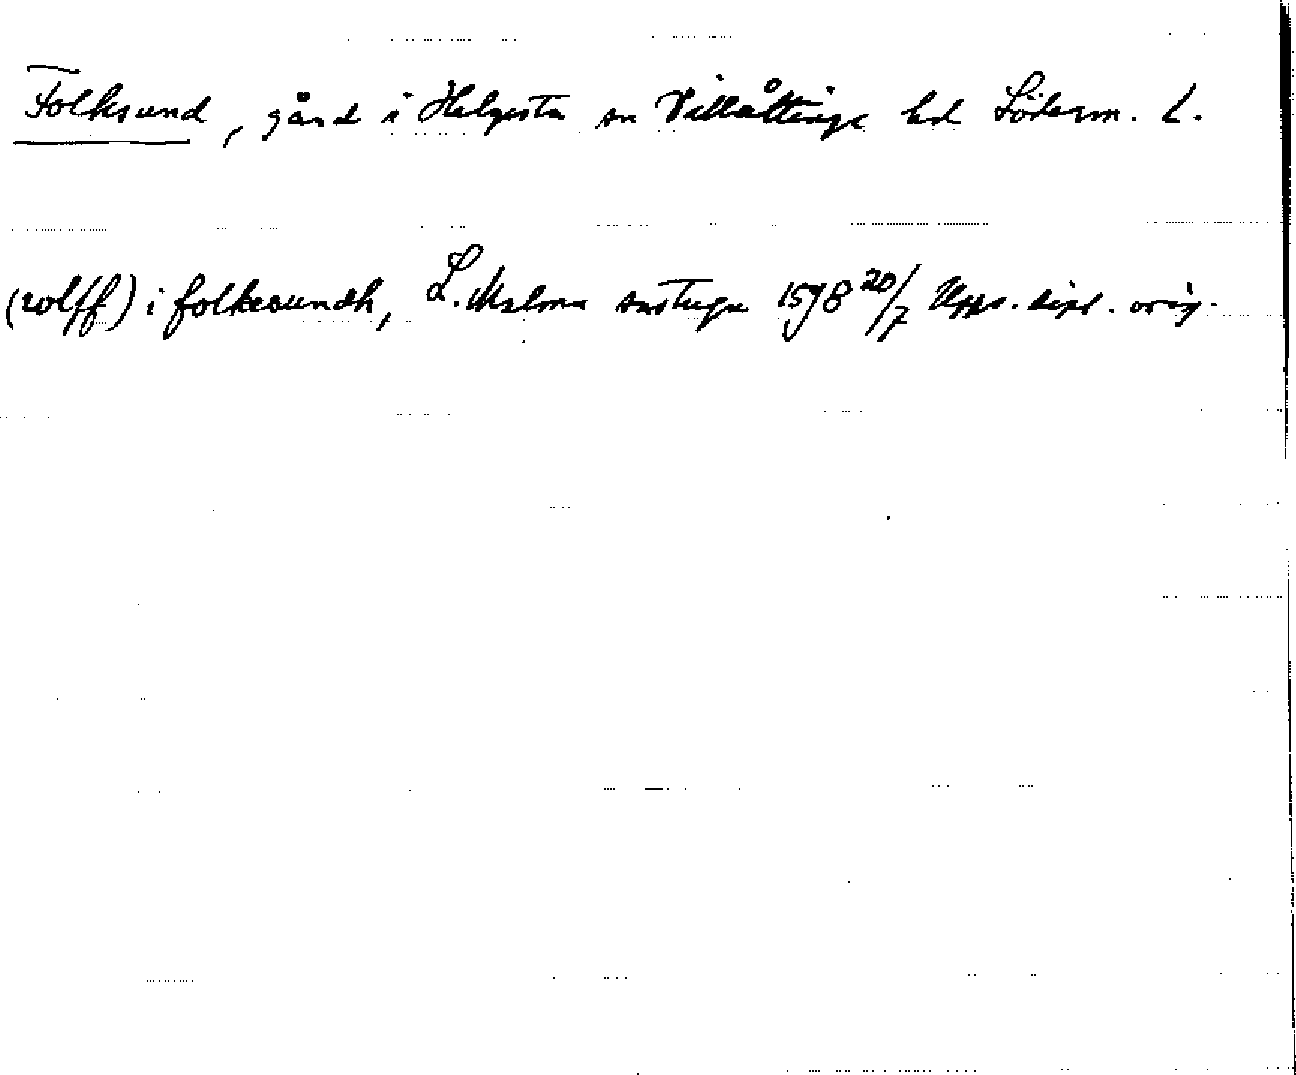 Folksund, gård i Helgesta sn Villåttinge hd Söderm. L.
(rolff) i folkesundh, L. Malma sastuga 1598 20/7 Upps. dipl. orig.